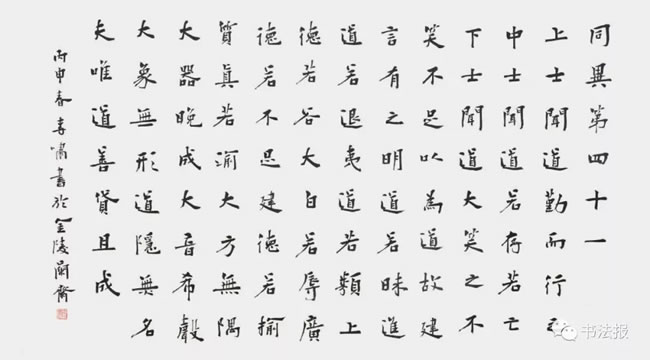 同異第四十一
上士聞道勤而行之
中士聞道若存若亡
下士聞道大笑之不
笑不足以為道故建
言有之明道若昧進
道若退夷道若類上
德若谷大白若辱廣
德若不足建德若揄
質真若渝大方無隅
大器晚成大音希聲
大象無形道隱無名
夫唯道善貸且成
丙申春李嘯書於金陵蘭齋
书法报